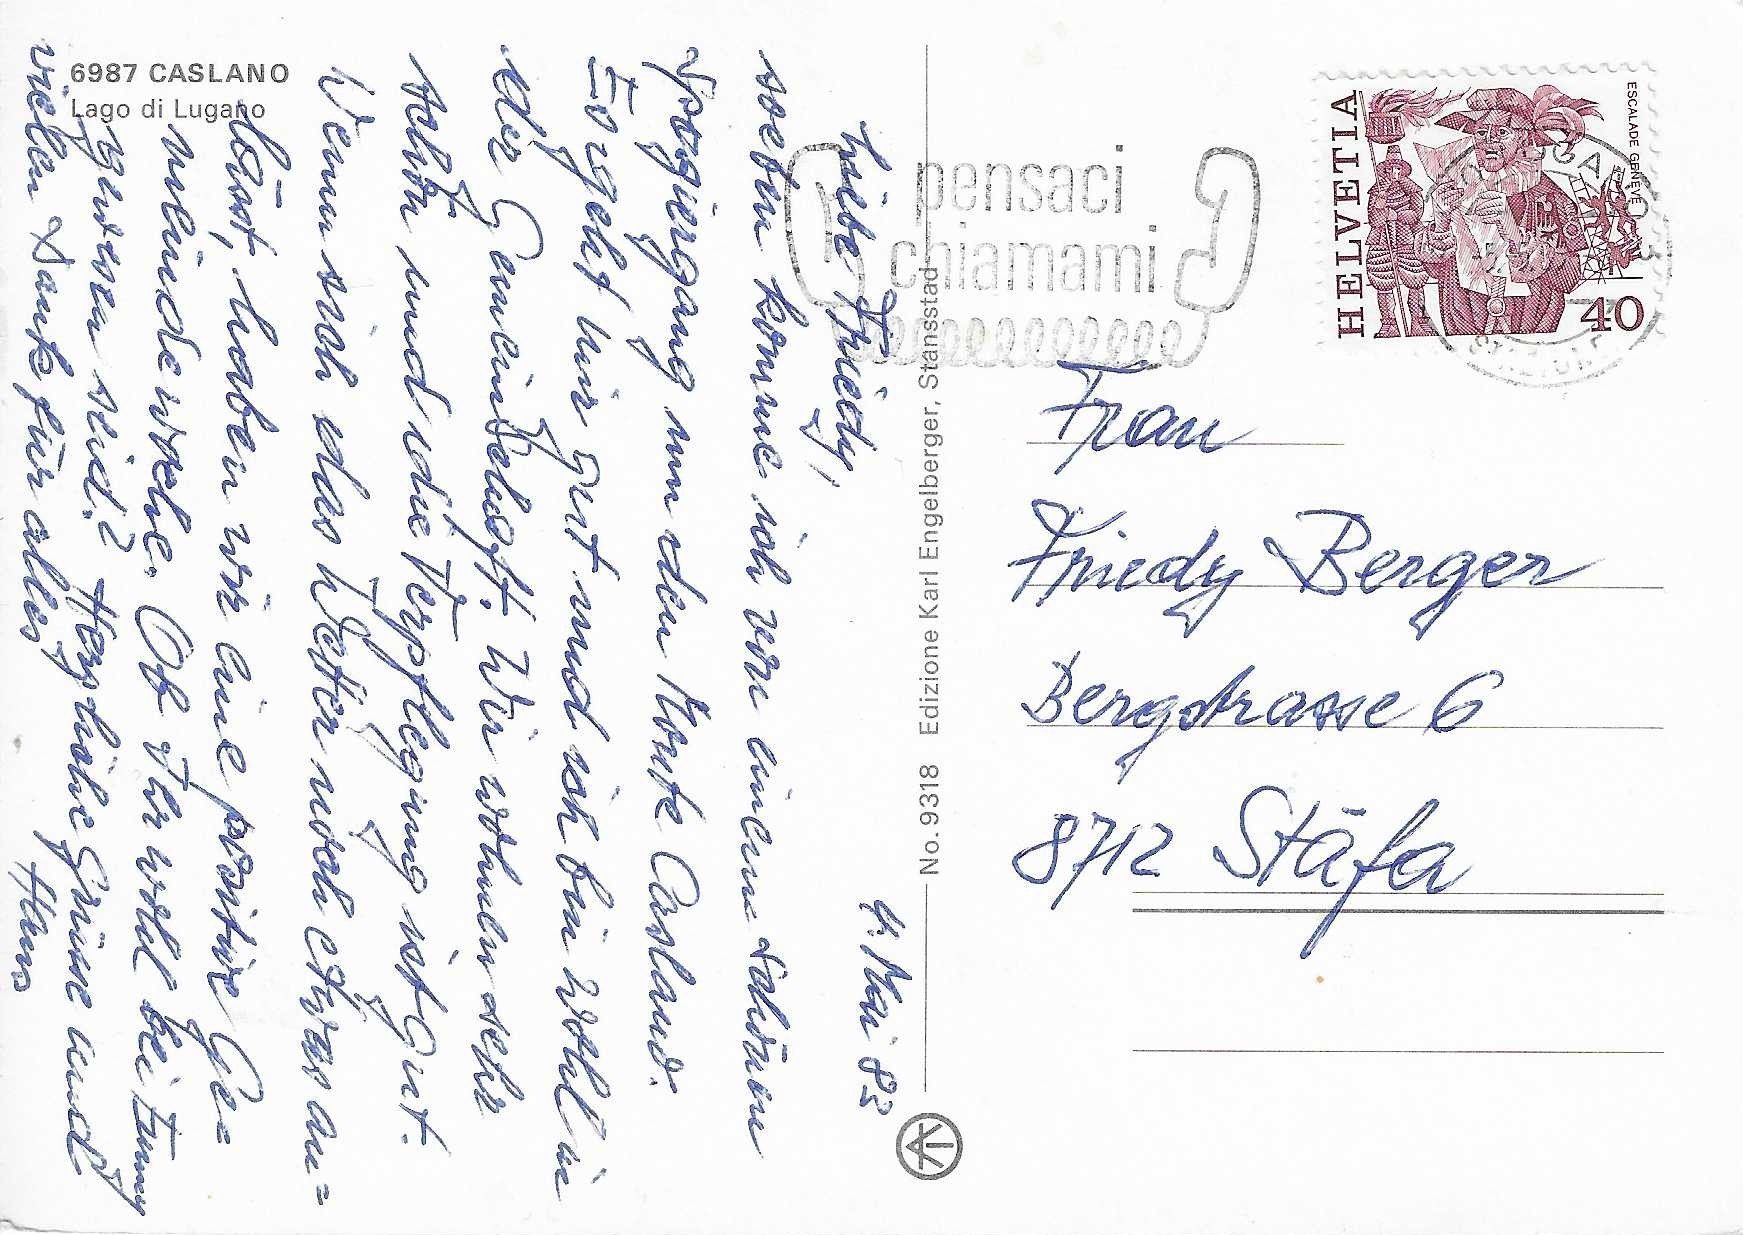 6987 CASLANO
Lago di Lugano
4. Mai 83
Liebe Friedy,
soeben komme ich von einem schönen
Spaziergang um den Monte Caslano.
Es geht mir gut und ich bin wohl in
der Gemeinschaft. Wir wohnen sehr
schön und die Verpflegung ist gut.
Wenn sich das Wetter noch etwas an=
lässt, haben wir eine positive Ge=
meindewoche. Ob Ihr wohl bei
gewesen seid? Herzliche Grüsse und
vielen Dank für alles
Hans
No. 9318 Edizione Karl Engelberger, Stansstad
pensaci
chiamami
HELVETIA
ESCALADE GENÈVE
40
Frau
Friedy Berger
Bergstrasse 6
8712 Stäfa